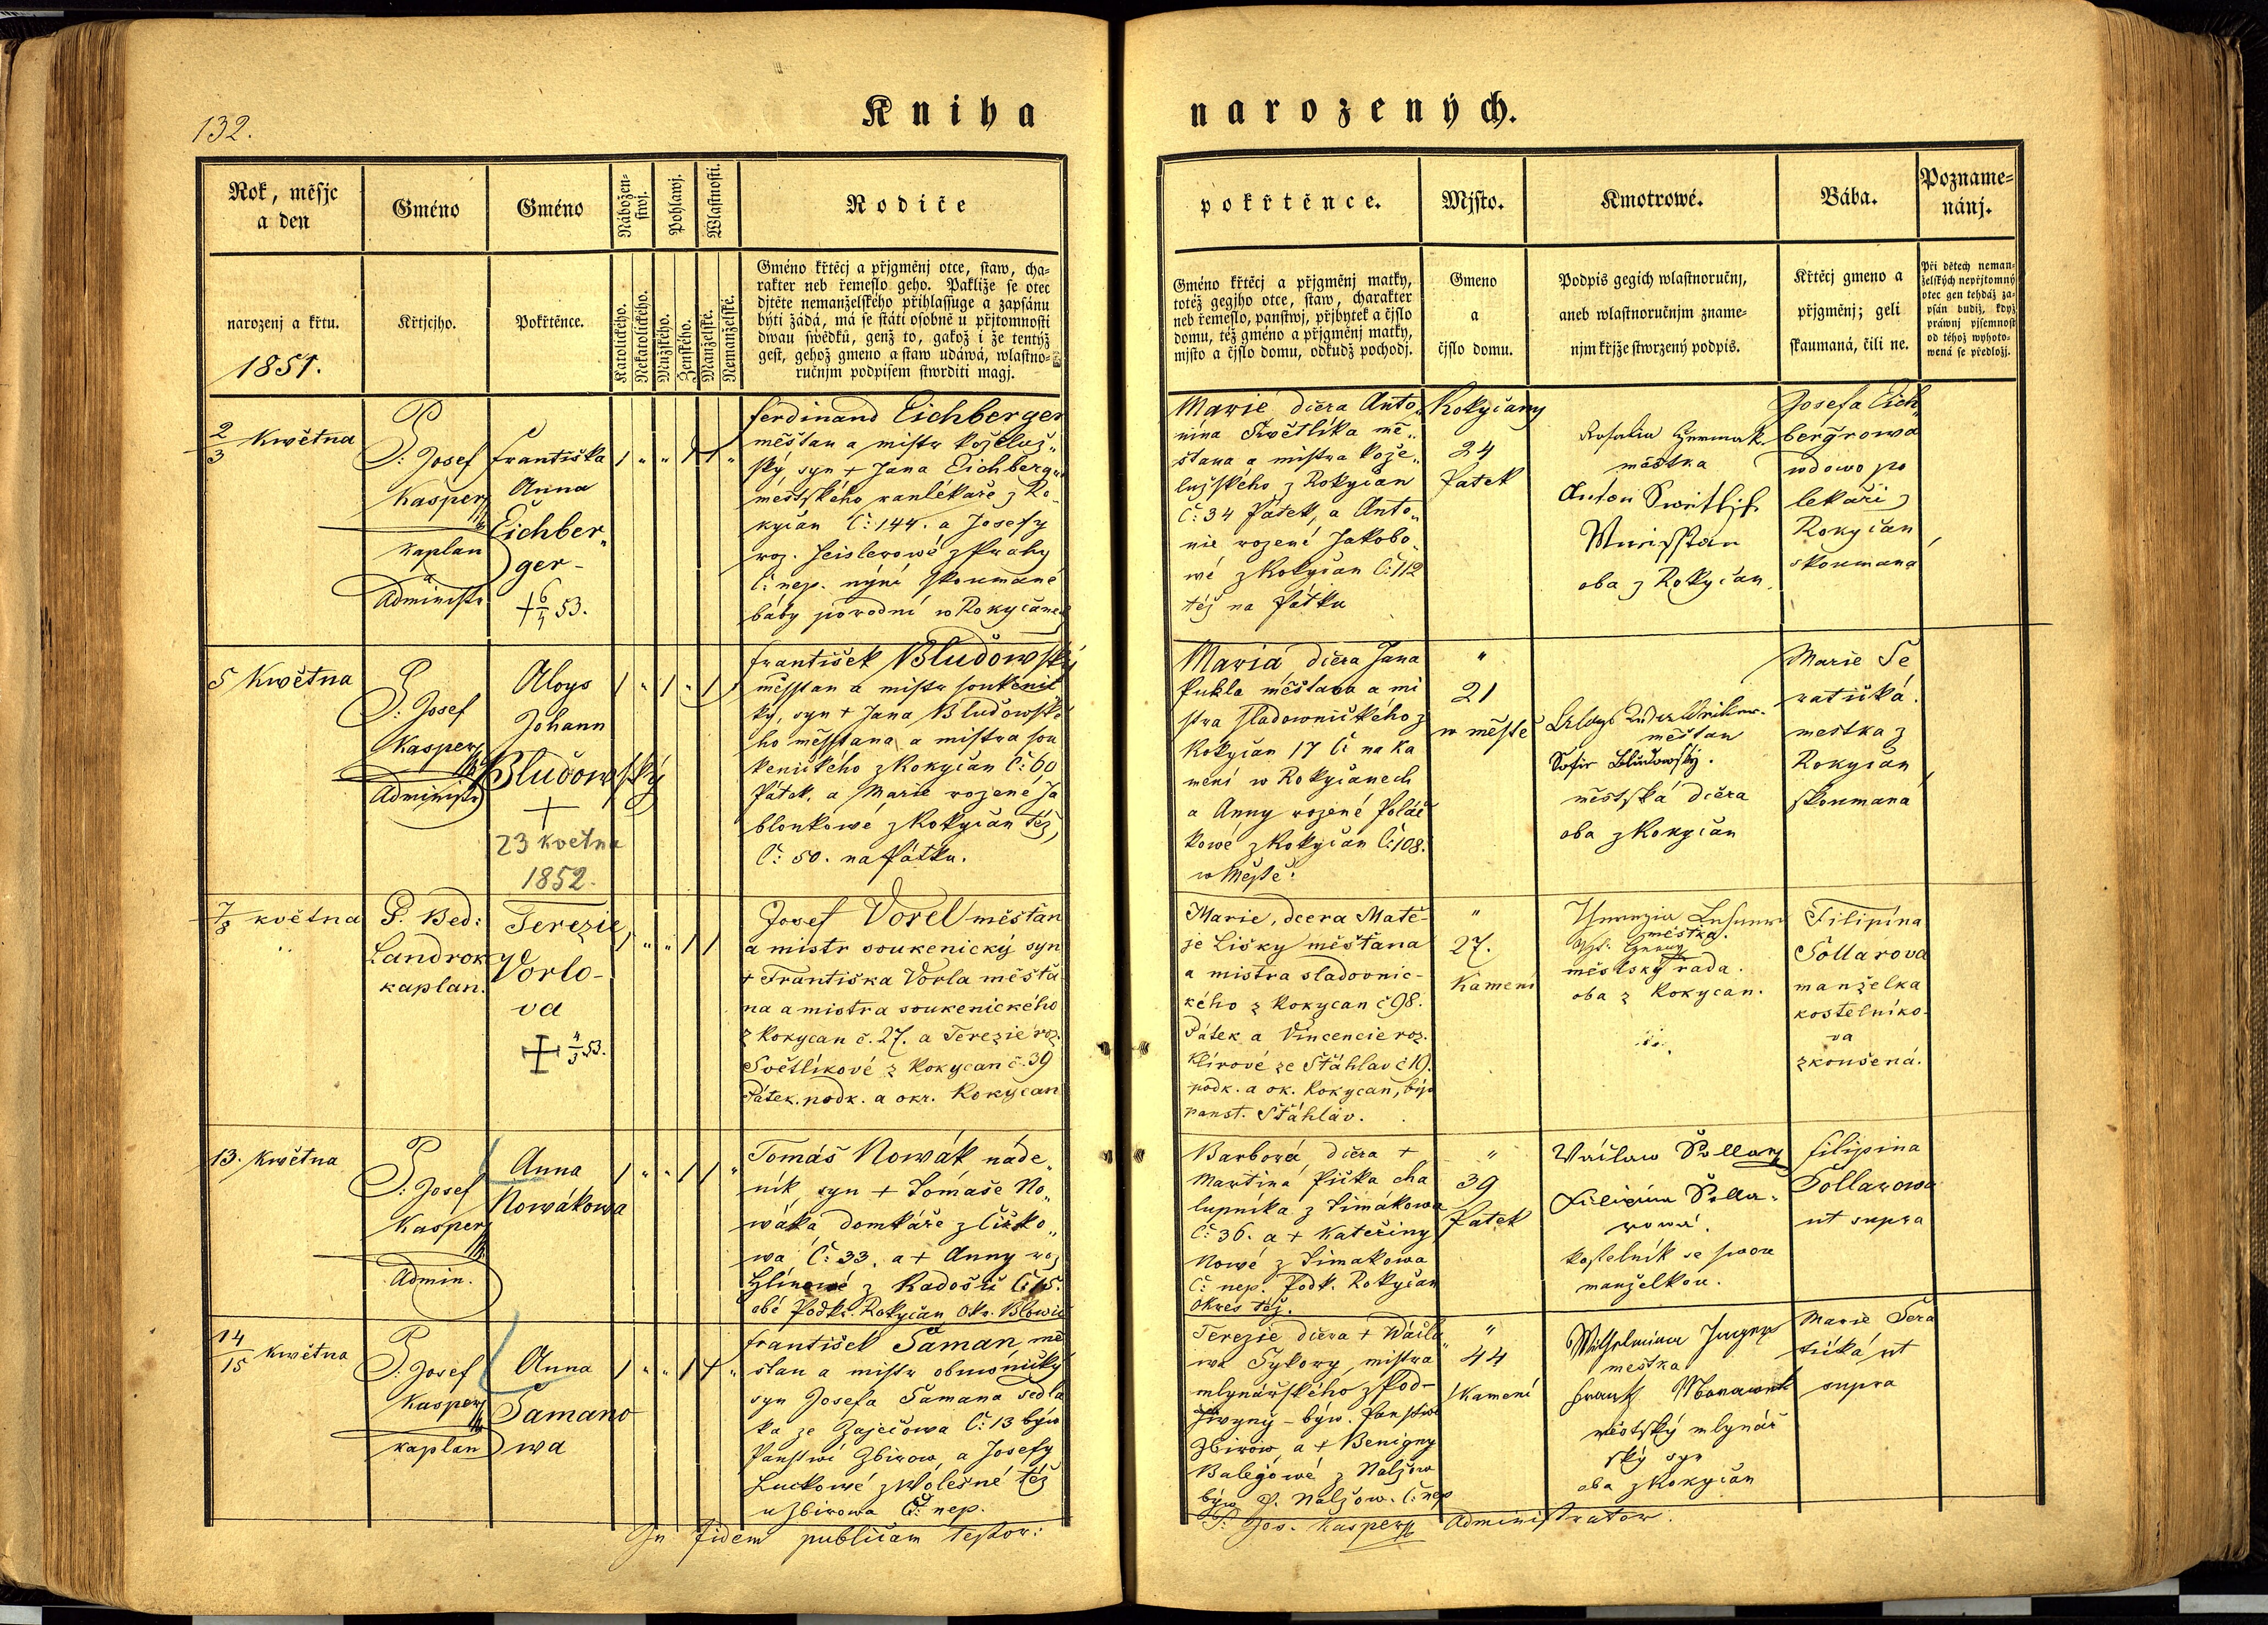 132.
Kniha
narozených.
Rok, měsjc
a den
Gméno
Gméno
Nábožen-
stwj.
Pohlawj.
Wlastnosti.
Rodiče
narozenj a křtu.
1851.
Křtjcjho.
Pokřtěnce.
Katolického.
Nekatolického.
Mužského.
Ženského.
Manželské.
Nemanželské.
Gméno křtěcj a přjgmenj otce, staw, cha-
rakter neb řemeslo geho. Pakliže se otec
djtěte nemanželského přihlassuge a zapsánu
býti žádá, má se státi osobně u přjtomnosti
dwau swědků, genž to, gakož i že tentýž
gest, gehož gmeno a staw udáwá, wlastno-
ručnjm podpisem stwrditi magj.
pokřtěnce.
Mjsto.
Kmotrowé.
Bába.
Pozname-
nánj.
Gméno křtěcj a přjgměnj matky,
totéž gegjho otce, staw, charakter
neb řemeslo, panstwj, přjbytek a čjslo
domu, též gméno a přjgměnj matky,
mjsto a čjslo domu, odkudž pochodj.
Gmeno
a
čjslo domu.
Podpis gegich wlastnoručnj,
aneb wlastnoručnjm zname-
njm křjže stwrzený podpis.
Křtěcj gmeno a
přjgměnj; geli
skaumaná, čili ne.
Při dětech neman-
želských nepřjtomný
otec gen tehdáž za-
psán budiž, když
práwnj pjsemnost
od téhož wyhoto-
wená se předložj.
2/3 Května
P: Josef
Kasper
kaplan
a
Administr
Františka
Anna
Eichber„
ger-
+ 53.
Ferdinand Eichberger
měštan a mistr koželuž„
ský syn + Jana Eichberg„
městského ranlékaře z Ro-
kyčan Č: 144. a Josefy
roz. Heislerowé z Prahy
Č: nep. nýní skoumané
báby porodní w Rokyčanech
Marie dčera Anto„
nína Swětlíka mě„
štana a mistra kože„
lužského z Rokyčan
Č: 34 Pátek, a Anto„
nie rozené Jakobo„
wé z Rokyčan Č: 112
též na Pátku
Rokyčany
24
Patek
Rosalia
městka
Anton
oba z Rokyčan
Josefa Eich„
bergrowa
wdowa po
lekaři z
Rokyčan
skoumana
5 Května
P: Josef
Kasper
Administr
Aloys
Johann
Bludowský
+
23 května
1852.
František Bludowský
měsstan a mistr soukenic
ký, syn + Jana Bludowské
ho měsstana a mistra sou
kenického z Rokyčan Č: 60
Pátek, a Marie rozené Ja
blonkowé z Rokyčan též,
Č: 50. na Pátku.
Maria dčera Jana
Pukla měštana a mi
stra sladownického z
Rokyčan 17 Č na Ka
mení w Rokyčanech
a Anny rozené Poláč
kowé z Rokyčan Č: 108.
w Městě.
"
21
w městě
Aloys
měštan
Sofie Bludowský.
městská dčera
oba z Rokyčan
Marie Še
ratická.
mestka z
Rokyčan
skoumaná
7/8 května
P. Bed:
Landrok
kaplan.
Terezie
Vorlo-
va
4/3 53.
Josef Vorel měšťan
a mistr soukenický syn
+ Františka Vorla měšťa
na a mistra soukenického
z Rokycan č. 27. a Terezie roz.
Světlíkové z Rokycan č. 39
Pátek. podk. a okr. Rokycan
Marie, dcera Matě-
je Lišky měšťana
a mistra sladovnic-
kého z Rokycan č 98.
Pátek a Vincencie roz.
Klírové ze Štáhlav č 19.
podk. a ok. Rokycan, býv
panst. Štáhlav.
"
27.
Kamení
městka.
městský rada.
oba z Rokycan.
Filipína
Šollarova
manželka
kostelníko-
va
zkoušená.
13. Května
P: Josef
Kasper
Admin.
Anna
Nowákowa
Tomáš Nowák náde„
ník syn + Tomáše No„
wáka domkáře z Čižko„
wa Č: 33. a + Anny roz
Hlínowé z Radošic Č: 15.
obě Podkr. Rokyčan Okr. Blowic
Barbora dčera +
Martina Pička cha
lupníka z Simákowa
Č: 36. a + Kateřiny
Nowé z Simakowa
Č: nep. Podk. Rokyčan
Okres též.
"
39
Patek
Wáclaw Šollar
Filipina Šolla-
rowá.
kostelník se swou
manželkou.
Filipina
Šollarowa
ut supra
14/15 Května
P: Josef
Kasper
kaplan
Anna
Šamano
wa
František Šaman, mě
štan a mistr obuwnický
syn Josefa Šamana sedla
ka ze Zaječowa Č: 13 býw
Panstwi Zbirow, a Josefy
Luckowé z Wolešné též
u Zbirowa Č: nep.
Terezie dčera + Wácla„
wa Sykory, mistra
mlynářského z Pod-
- býw. Panstwi
Zbirow, a + Benigny
Balegowé z Nalžow
býw P. Nalžow. Č: nep
"
44
Kamení
Wilhelmina
mestka
Frantz
městský mlynář
ský syn
oba z Rokyčan
Marie Šera
tická ut
supra
In fidem publicam testor:
P: Jos. Kasper Administrator.